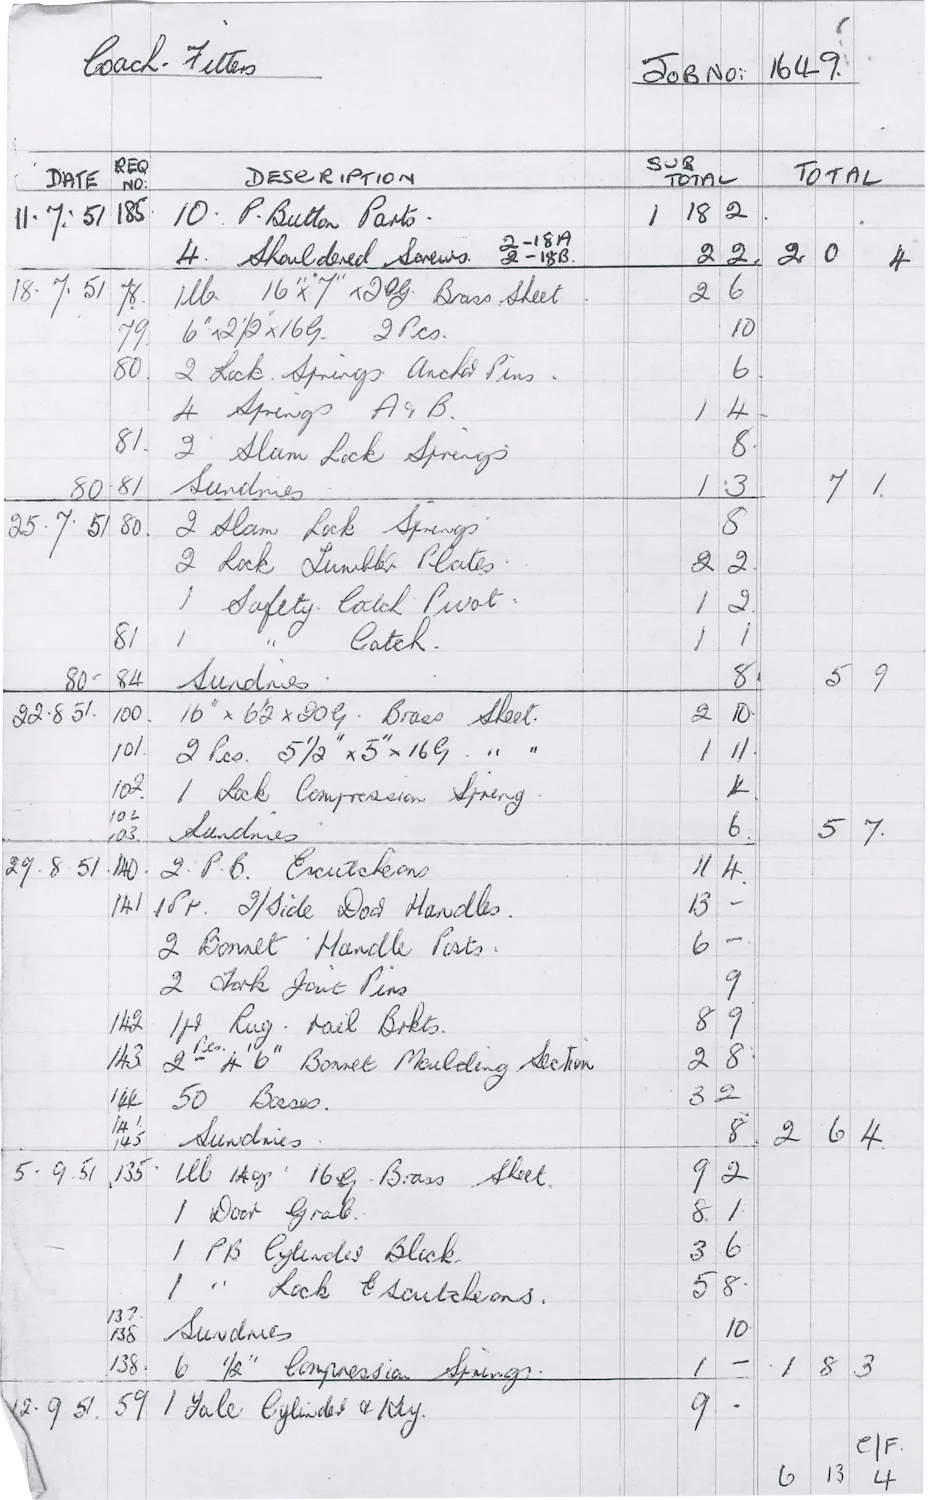 Coach-Fitters JOB NO: 1649.
DATE REQ NO: DESCRIPTION SUB TOTAL TOTAL
11.7.51 185 10. P. Button Parts. 1 18 2
4. Shouldered Screws. 2-18A 2-18B. 2 2. 2 0 4
18.7.51 78. 1lb 16"x7" x20G. Brass Sheet 2 6
79 6"x2½"x16G. 2 Pcs. 10
80. 2 Lock Springs Anchor Pins. 6.
4 Springs A & B. 1 4
81. 2 Slam Lock Springs 8.
80-81 Sundries 1 3 7 1.
25.7.51 80. 2 Slam Lock Springs 8
2 Lock Tumbler Plates. 2 2.
1 Safety Catch Pivot. 1 2
81 1 " Catch. 1 1
80-84 Sundries. 8 5 9
22.8.51. 100. 16" x 6½ x 20G. Brass Sheet. 2 10.
101. 2 Pcs. 5½" x 5" x 16G. " " 1 11.
102. 1 Lock Compression Spring. 4.
102 103. Sundries 6. 5 7.
29.8.51. 140. 2. P.B. Escutcheons 11 4.
141 1Pr. 2/Side Door Handles. 13 -
2 Bonnet Handle Posts. 6 -
2 Fork Joint Pins 9
142 1pr Rug-rail Brkts. 8 9
143 2 Pcs. 4'6" Bonnet Moulding Section 2 8
144 50 Bosses. 3 2
141. 145 Sundries. 8. 2 6 4.
5.9.51 135. 1lb 16G. Brass Sheet. 9 2
1 Door Grab. 8. 1
1 PB Cylinder Block. 3 6
1 " Lock Escutcheons. 5 8.
137. 138 Sundries 10
138. 6 ½" Compression Springs. 1 - 1 8 3
12.9.51. 59 1 Yale Cylinder & Key. 9 -
C/F.
6 13 4